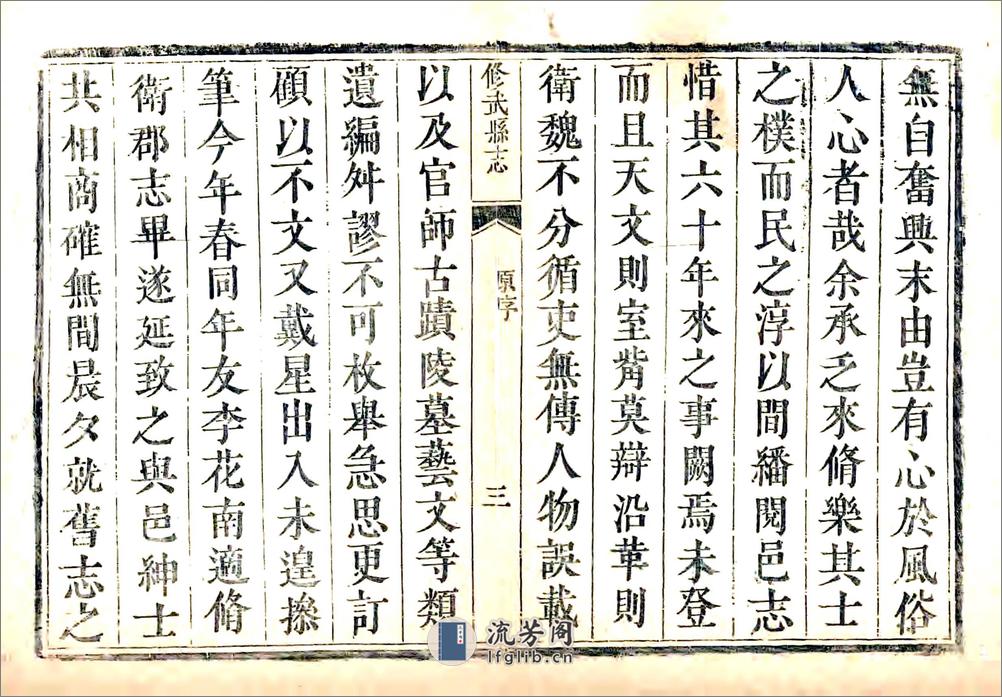 無自奮興末由豈有心於風俗
人心者哉余承乏來脩樂其士
之樸而民之淳以間繙閱邑志
惜其六十年來之事闕焉未登
而且天文則室觜莫辯沿革則
衛魏不分循吏無傳人物誤載
修武縣志
原序
三
以及官師古蹟陵墓藝文等類
遺編舛謬不可枚舉急思更訂
顧以不文又戴星出入未遑操
筆今年春同年友李花南適脩
衛郡志畢遂延致之與邑紳士
共相商確無間晨夕就舊志之
流芳阁
lfglib.cn